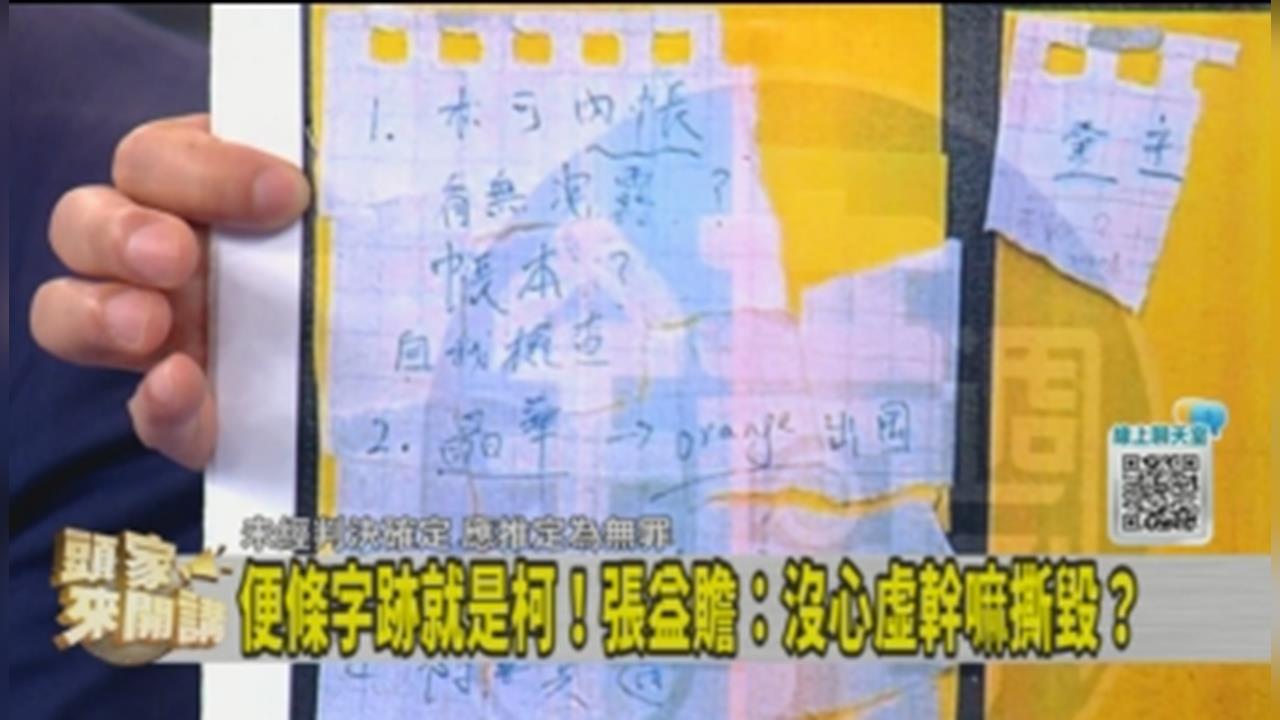 1. 木可內帳
有無洩露?
帳本?
自我概述
2. 晶華 → orange 出國
黨主
線上聊天室
未經判決確定 應推定為無罪
頭家來開講
便條字跡就是柯!張益贍:沒心虛幹嘛撕毀?